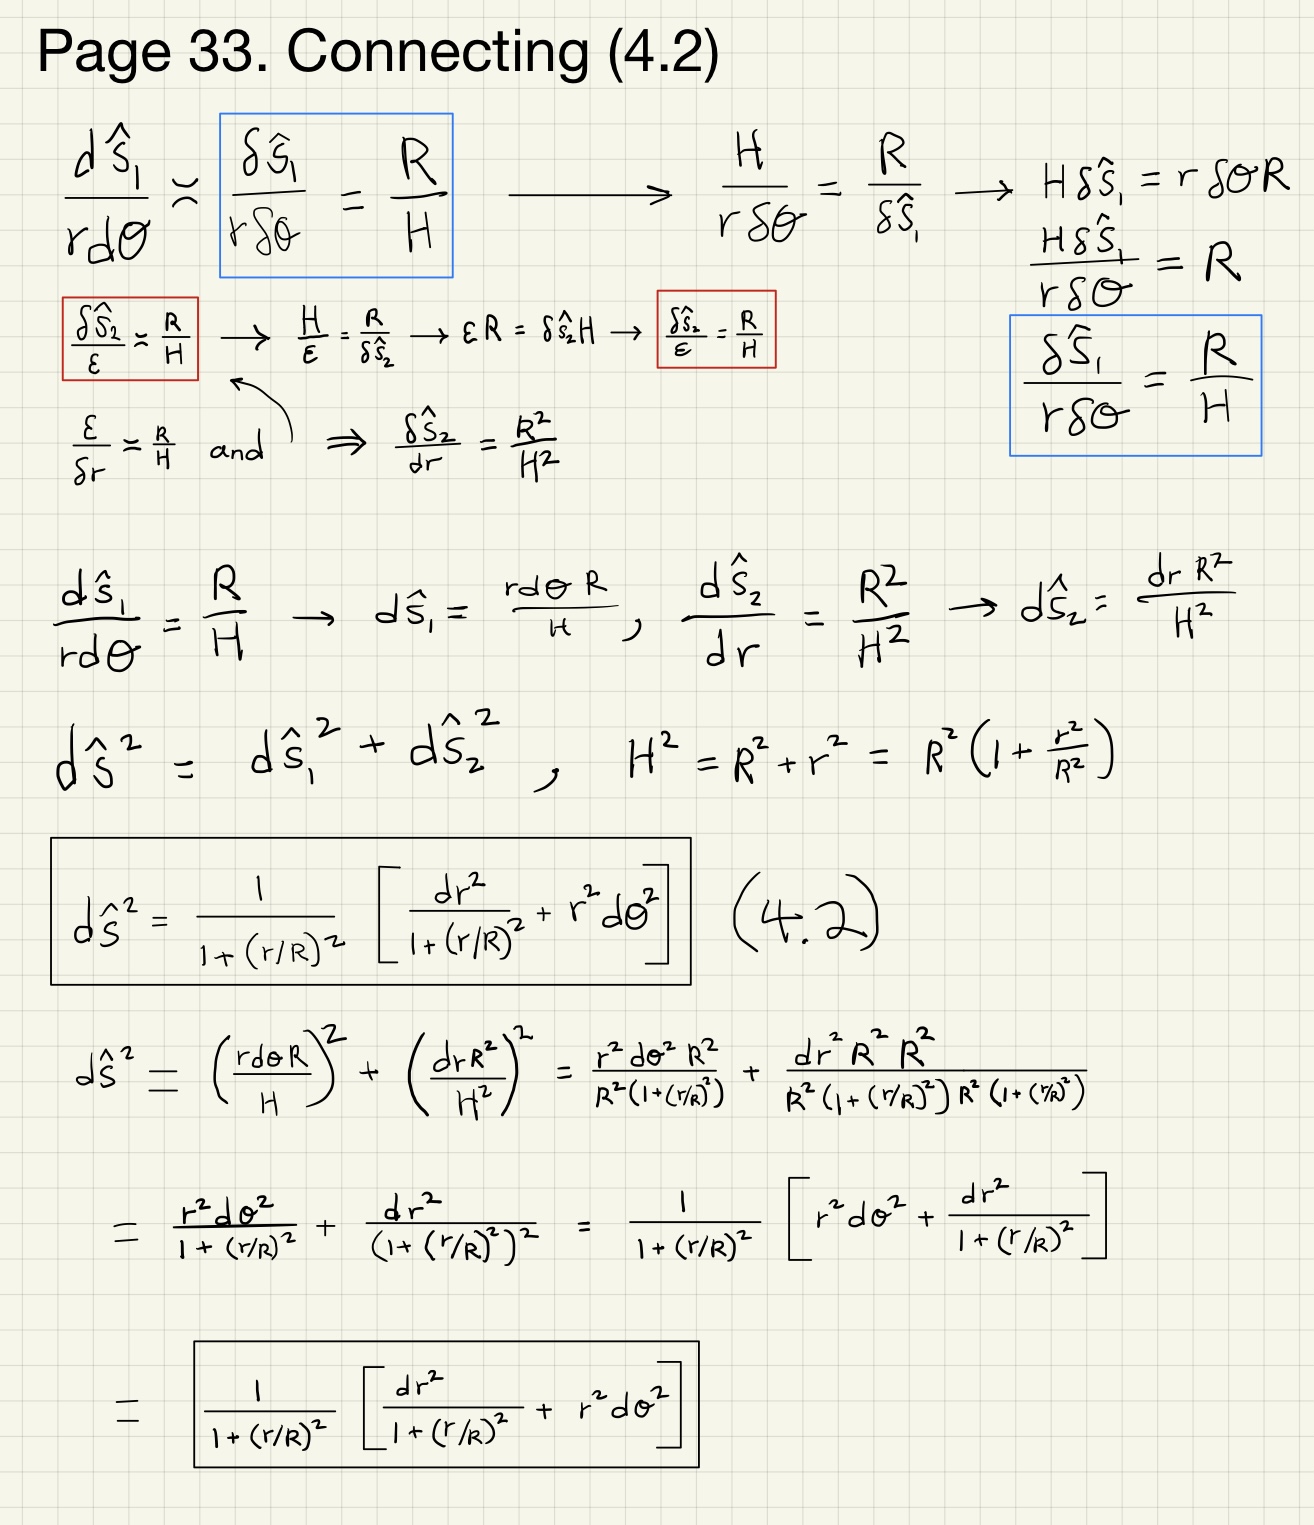 Page 33. Connecting (4.2)
dŝ₁/rdθ ≍ δŝ₁/rδθ = R/H ⟶ H/rδθ = R/δŝ₁ → Hδŝ₁ = rδθR
Hδŝ₁/rδθ = R
δŝ₁/rδθ = R/H
δŝ₂/ε ≍ R/H → H/ε = R/δŝ₂ → εR = δŝ₂H → δŝ₂/ε = R/H
ε/δr ≍ R/H and ⇒ δŝ₂/dr = R²/H²
dŝ₁/rdθ = R/H → dŝ₁ = rdθR/H , dŝ₂/dr = R²/H² → dŝ₂ = drR²/H²
dŝ² = dŝ₁² + dŝ₂² , H² = R² + r² = R²(1 + r²/R²)
dŝ² = 1/(1+(r/R)²) [dr²/(1+(r/R)²) + r²dθ²] (4.2)
dŝ² = (rdθR/H)² + (drR²/H²)² = r²dθ²R²/R²(1+(r/R)²) + dr²R²R²/R²(1+(r/R)²)R²(1+(r/R)²)
= r²dθ²/(1+(r/R)²) + dr²/(1+(r/R)²)² = 1/(1+(r/R)²) [r²dθ² + dr²/(1+(r/R)²)]
= 1/(1+(r/R)²) [dr²/(1+(r/R)²) + r²dθ²]